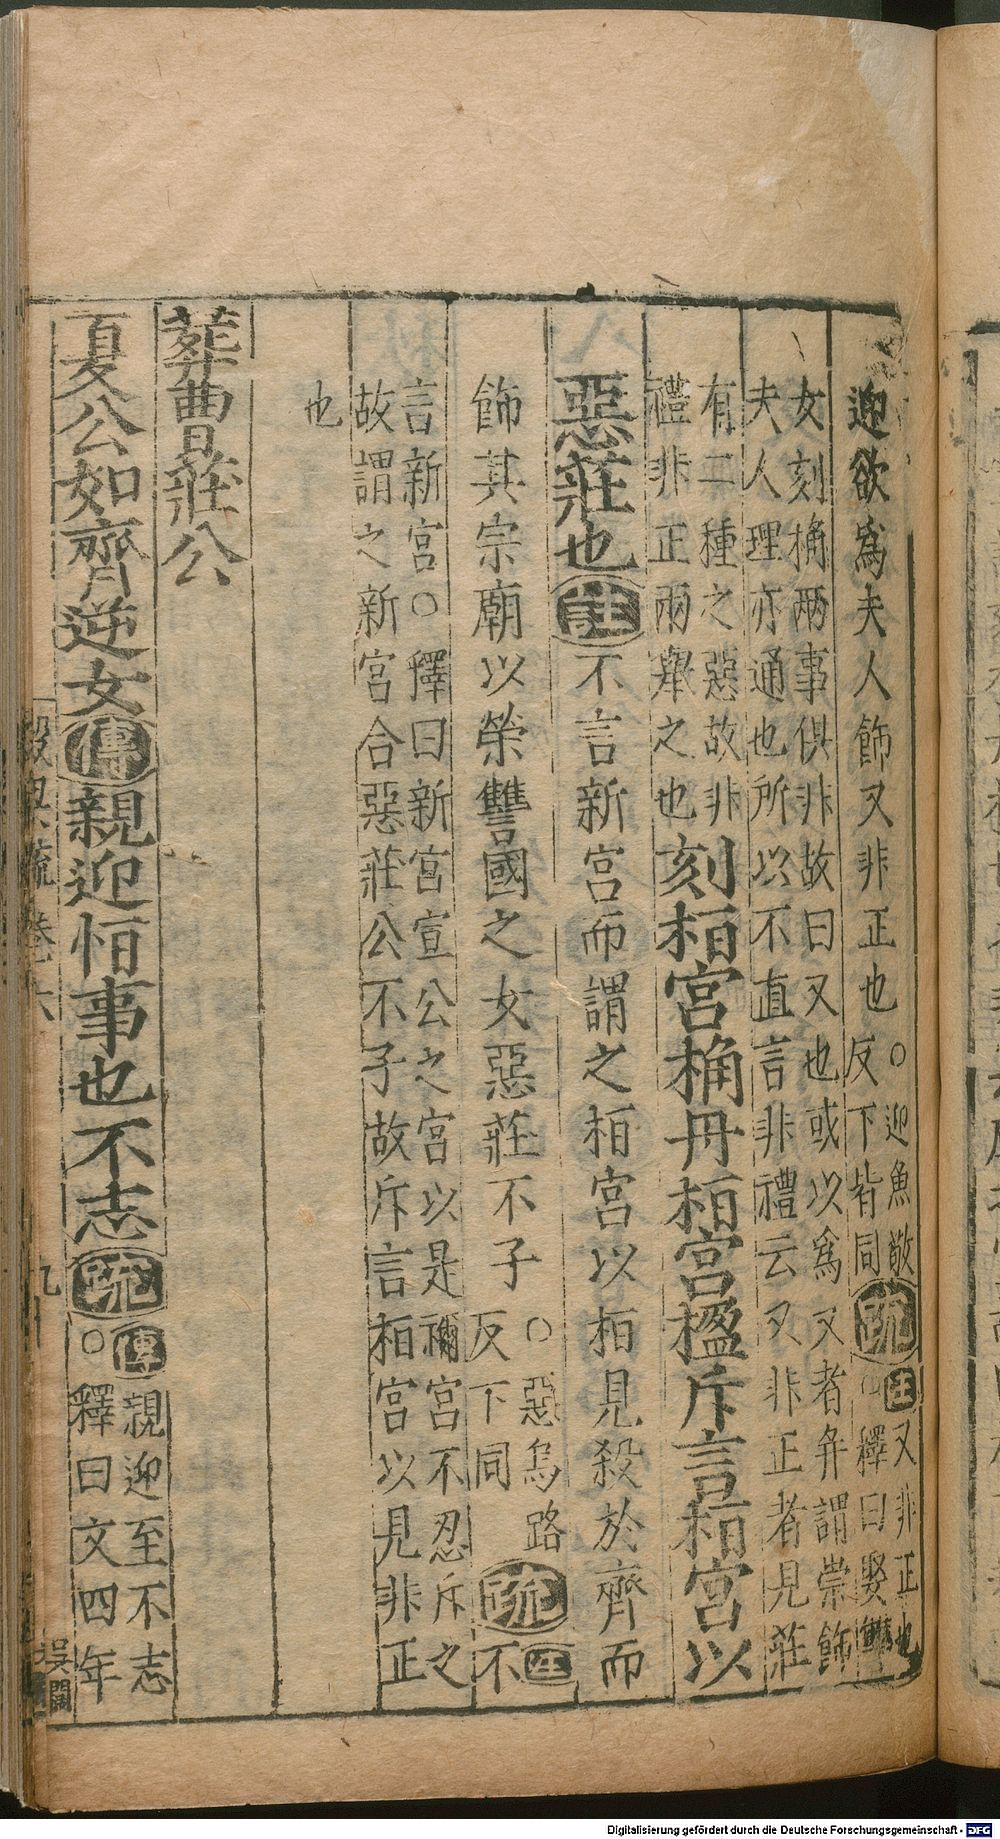 迎欲爲夫人飾又非正也○迎魚敬
反下皆同疏注又非正也
釋曰娶讐
女刻桷兩事俱非故曰又也或以爲又者并謂崇飾
夫人理亦通也所以不直言非禮云又非正者見莊
有二種之惡故非
禮非正兩舉之也刻栢宮桷丹栢宮楹斥言栢宮以
惡莊也註不言新宮而謂之栢宮以栢見殺於齊而
飾其宗廟以榮讐國之女惡莊不子○惡烏路
反下同疏注不
言新宮○釋曰新宮宣公之宮以是禰宮不忍斥之
故謂之新宮合惡莊公不子故斥言栢宮以見非正
也
葬曹莊公
夏公如齊逆女傳親迎恒事也不志疏傳親迎至不志
○釋曰文四年
穀梁疏卷六
九
吳闊
Digitalisierung gefördert durch die Deutsche Forschungsgemeinschaft - DFG